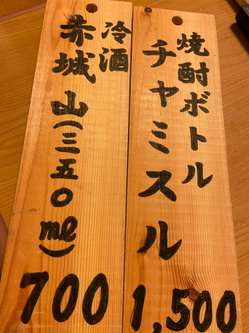 焼酎ボトル
チャミスル
1,500
冷酒
赤城山(三五〇㎖)
700